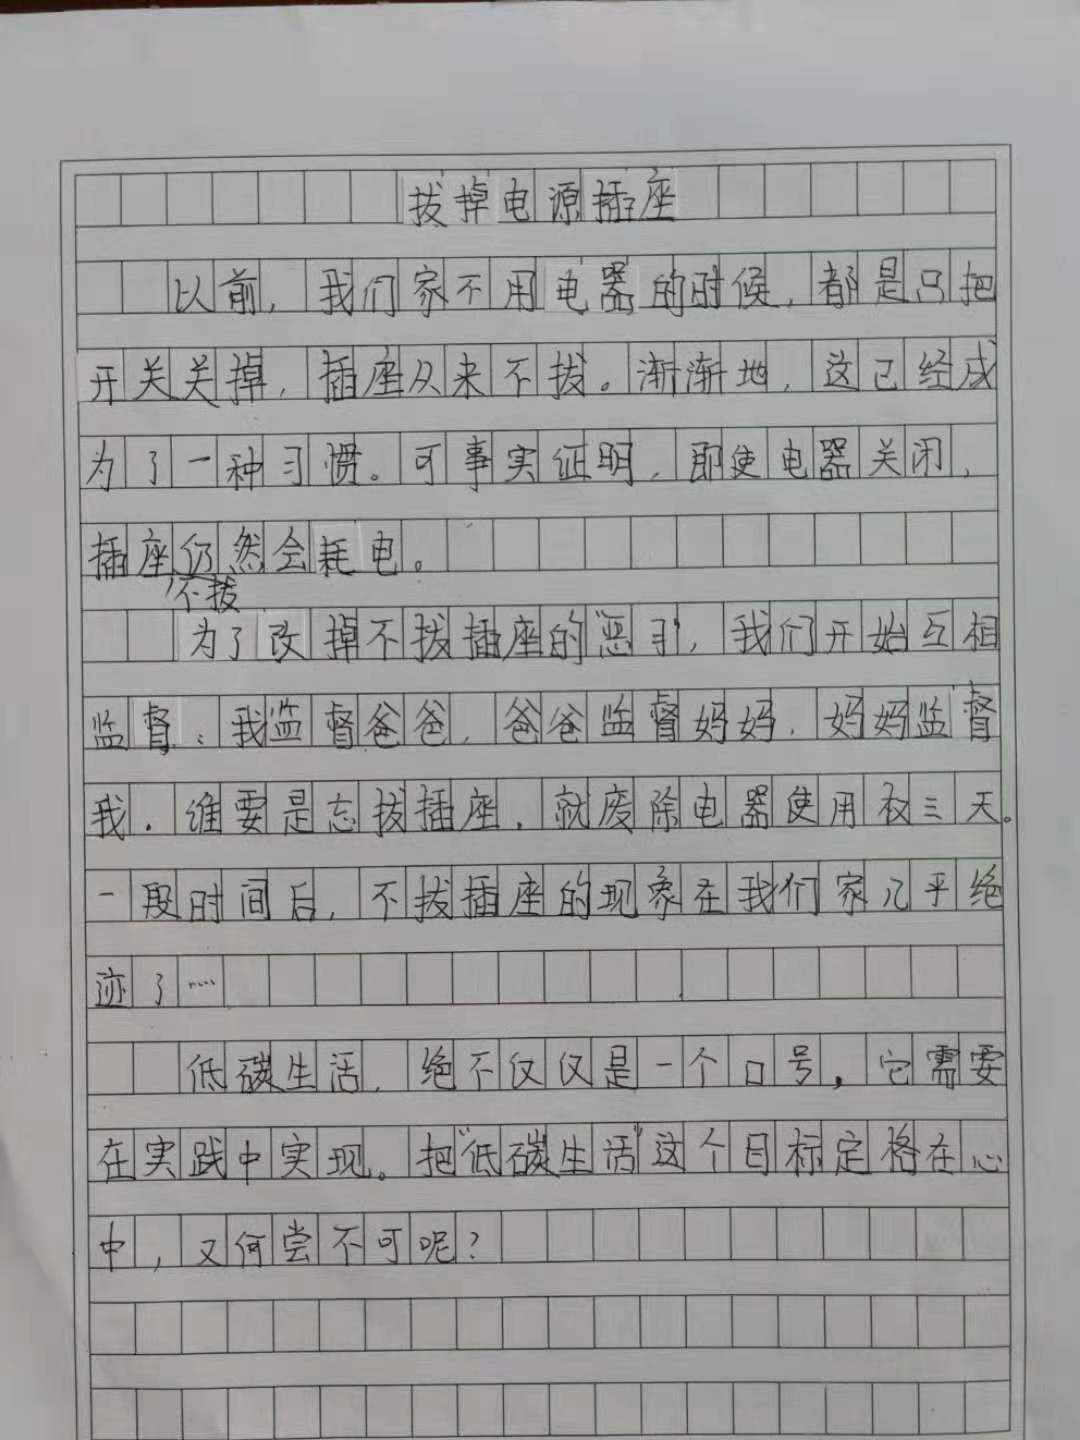 拔掉电源插座
以前，我们家不用电器的时候，都是只把
开关关掉，插座从来不拔。渐渐地，这已经成
为了一种习惯。可事实证明，即使电器关闭，
插座仍然会耗电。
不拔
为了改掉不拔插座的"恶习"，我们开始互相
监督：我监督爸爸，爸爸监督妈妈，妈妈监督
我。谁要是忘拔插座，就废除电器使用权三天。
一段时间后，不拔插座的现象在我们家几乎绝
迹了……
低碳生活，绝不仅仅是一个口号，它需要
在实践中实现。把"低碳生活"这个目标定格在心
中，又何尝不可呢？